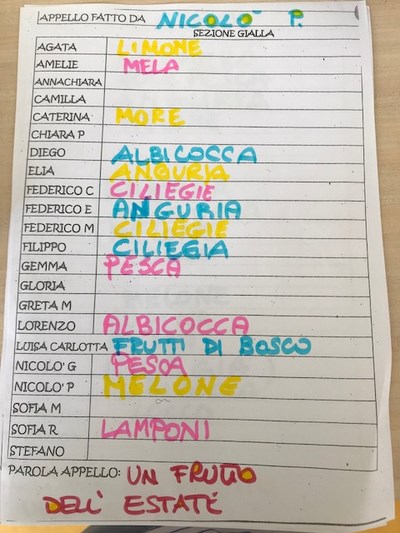 APPELLO FATTO DA NICOLO' P.
SEZIONE GIALLA
AGATA LIMONE
AMELIE MELA
ANNACHIARA
CAMILLA
CATERINA MORE
CHIARA P
DIEGO ALBICOCCA
ELIA ANGURIA
FEDERICO C CILIEGIE
FEDERICO E ANGURIA
FEDERICO M CILIEGIE
FILIPPO CILIEGIA
GEMMA PESCA
GLORIA
GRETA M
LORENZO ALBICOCCA
LUISA CARLOTTA FRUTTI DI BOSCO
NICOLO' G PESCA
NICOLO' P MELONE
SOFIA M
SOFIA R LAMPONI
STEFANO
PAROLA APPELLO: UN FRUTTO
DELL' ESTATE